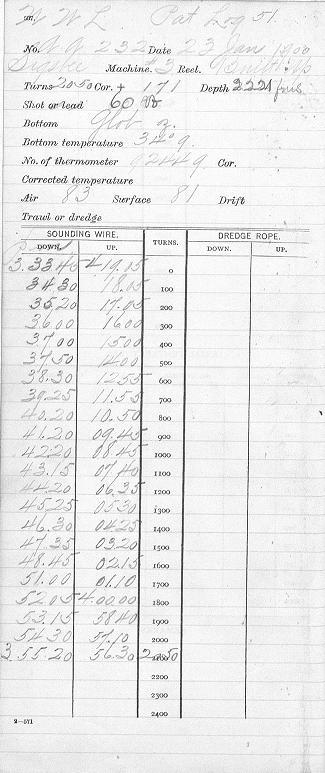 Pat Log 51.
No. A.A. 232 Date 23 Jan 1900
Machine. #3 Reel.
Turns 2050 Cor. + 171 Depth 2221 fms
Shot or lead 60 lb
Bottom Glob z.
Bottom temperature 34°9.
No. of thermometer 92449 Cor.
Corrected temperature
Air 83 Surface 81 Drift
Trawl or dredge
SOUNDING WIRE. TURNS. DREDGE ROPE.
DOWN. UP. DOWN. UP.
3.33.45 4 19.15 0
34 30 18.05 100
35.20 17.05 200
36.00 16 00 300
37 00 15 00 400
37.50 14 00 500
38.30 12.55 600
39.25 11.55 700
40.20 10.50 800
41.20 09.45 900
42.20 08 45 1000
43.15 07.40 1100
44.20 06.35 1200
45.25 05 30 1300
46.30 04 25 1400
47.35 03.20 1500
48.45 02.15 1600
51.00 01.10 1700
52.05 4.00.00 1800
53.15 58 40 1900
54 30 57.10 2000
3.55.20 56.30 2050
2200
2300
2400
2—571